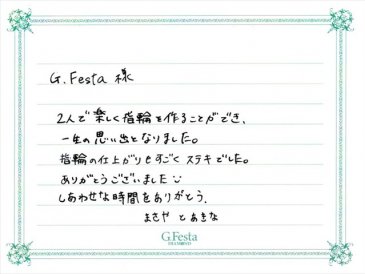 G.Festa 様
2人で楽しく指輪を作ることができ、
一生の思い出となりました。
指輪の仕上がりもすごくステキでした。
ありがとうございました
しあわせな時間をありがとう。
まさや とあきな
G.Festa
DIAMOND